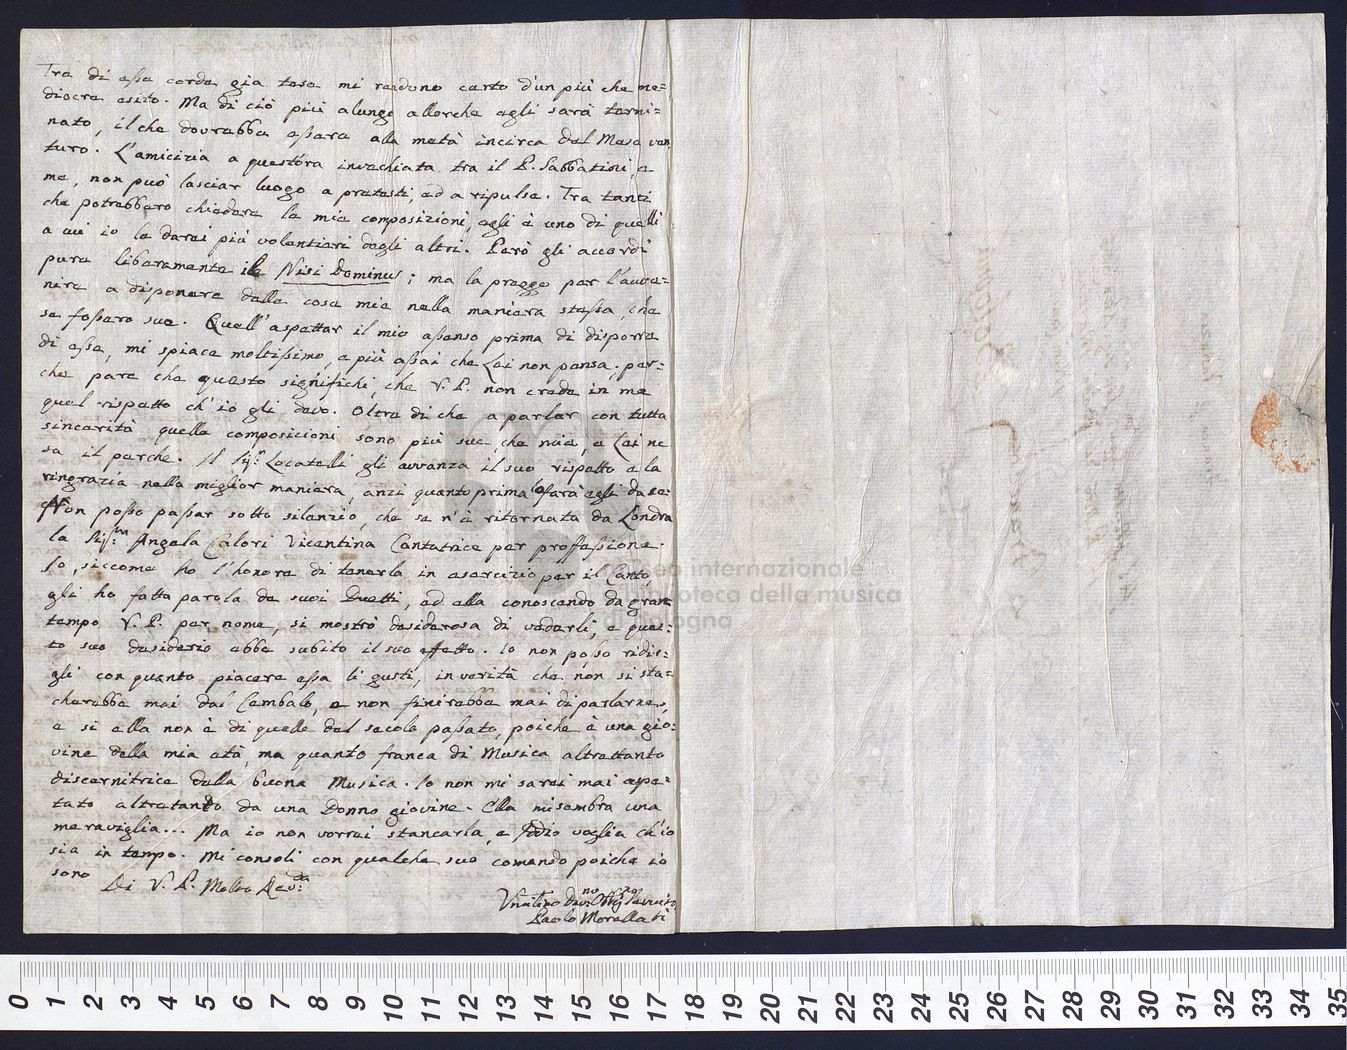 Tra di essa corda gia tesa mi rendono certo d'un più che me=
diocre esito. Ma di ciò più a lungo allorche egli sarà termi=
nato, il che dovrebbe essere alla metà incirca del Mese ven
turo. L'amicizia a quest'ora invechiata tra il P. Sabbatini, e
me, non può lasciar luogo a pretesti, ed a ripulse. Tra tanti
che potrebbero chiedere le mie composizioni, egli è uno di quelli
a cui io le darei più volentieri degli altri. Però gli accordi
pure liberamente il Nisi Dominus; ma la preggo per l'avve=
nire a disponere delle cose mie nella maniera stessa, che
se fossero sue. Quell'aspettar il mio assenso prima di disporre
di esse, mi spiace moltissimo, e più assai che Lei non pensa, per=
che pare che questo significhi, che V. P. non creda in me
quel rispetto ch'io gli devo. Oltre di che a parlar con tutta
sincerità quelle composicioni sono più sue, che mie, e Lei ne
sa il perche. Il Sig.r Locatelli gli avvanza il suo rispetto e la
ringrazia nella miglior maniera, anzi quanto prima lo farà egli da se.
Non posso passar sotto silenzio, che se n'è ritornata da Londra
la Sig.ra Angela Calori Vicentina Cantatrice per proffessione.
Io, siccome ho l'honore di tenerla in esercizio per il Canto,
gli ho fatta parola de suoi Duetti, ed ella conoscendo da gran
tempo V. P. per nome, si mostrò desiderosa di vederli, e ques=
to suo desiderio ebbe subito il suo effetto. Io non posso ridir=
gli con quanto piacere essa li gusti, in verità che non si sta=
cherebbe mai dal Cembalo, e non finirebbe mai di parlarne,
e si ella non è di quelle del secolo passato, poiche è una gio=
vine della mia età, ma quanto franca di Musica altrettanto
discernitrice della buona Musica. Io non mi sarei mai aspe=
tato altretando da una Donna giovine. Ella mi sembra una
meraviglia... Ma io non vorrei stancarla, e Iddio voglia ch'io
sia in tempo. Mi consoli con qualche suo comando poiche io
sono
Di V. P. Molto Rev.da
Umilmo Devmo Obbligmo Servito.
Paolo Morellati
museo internazionale
e biblioteca della musica
di bologna
0 1 2 3 4 5 6 7 8 9 10 11 12 13 14 15 16 17 18 19 20 21 22 23 24 25 26 27 28 29 30 31 32 33 34 35